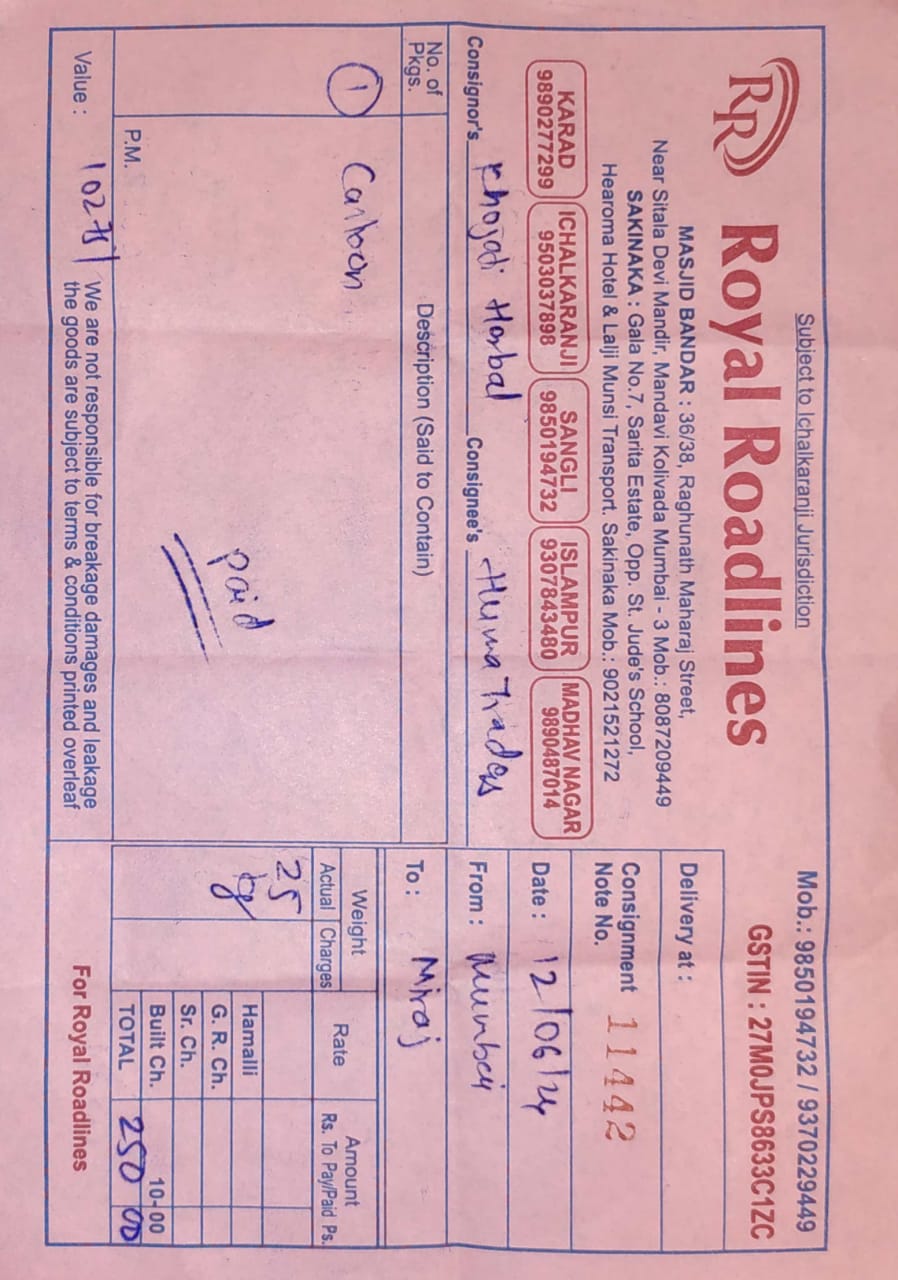 Subject to Ichalkaranji Jurisdiction
Mob.: 9850194732 / 9370229449
GSTIN : 27M0JPS8633C1ZC
RR Royal Roadlines
MASJID BANDAR : 36/38, Raghunath Maharaj Street,
Near Sitala Devi Mandir, Mandavi Kolivada Mumbai - 3 Mob.: 8087209449
SAKINAKA : Gala No.7, Sarita Estate, Opp. St. Jude's School,
Hearoma Hotel & Lalji Munsi Transport. Sakinaka Mob.: 9021521272
KARAD 9890277299
ICHALKARANJI 9503037898
SANGLI 9850194732
ISLAMPUR 9307843480
MADHAV NAGAR 9890487014
Delivery at :
Consignment Note No. 11442
Date : 12/06/24
From : Mumbai
To : Miraj
Consignor's Khojati Herbal Consignee's Huma Trades
No. of Pkgs.
Description (Said to Contain)
Weight
Actual Charges
Rate
Amount
Rs. To Pay/Paid Ps.
1 Cartoon
25 kg
paid
Hamalli
G. R. Ch.
Sr. Ch.
Built Ch. 10-00
TOTAL 250 00
P.M.
Value :
We are not responsible for breakage damages and leakage
the goods are subject to terms & conditions printed overleaf
For Royal Roadlines